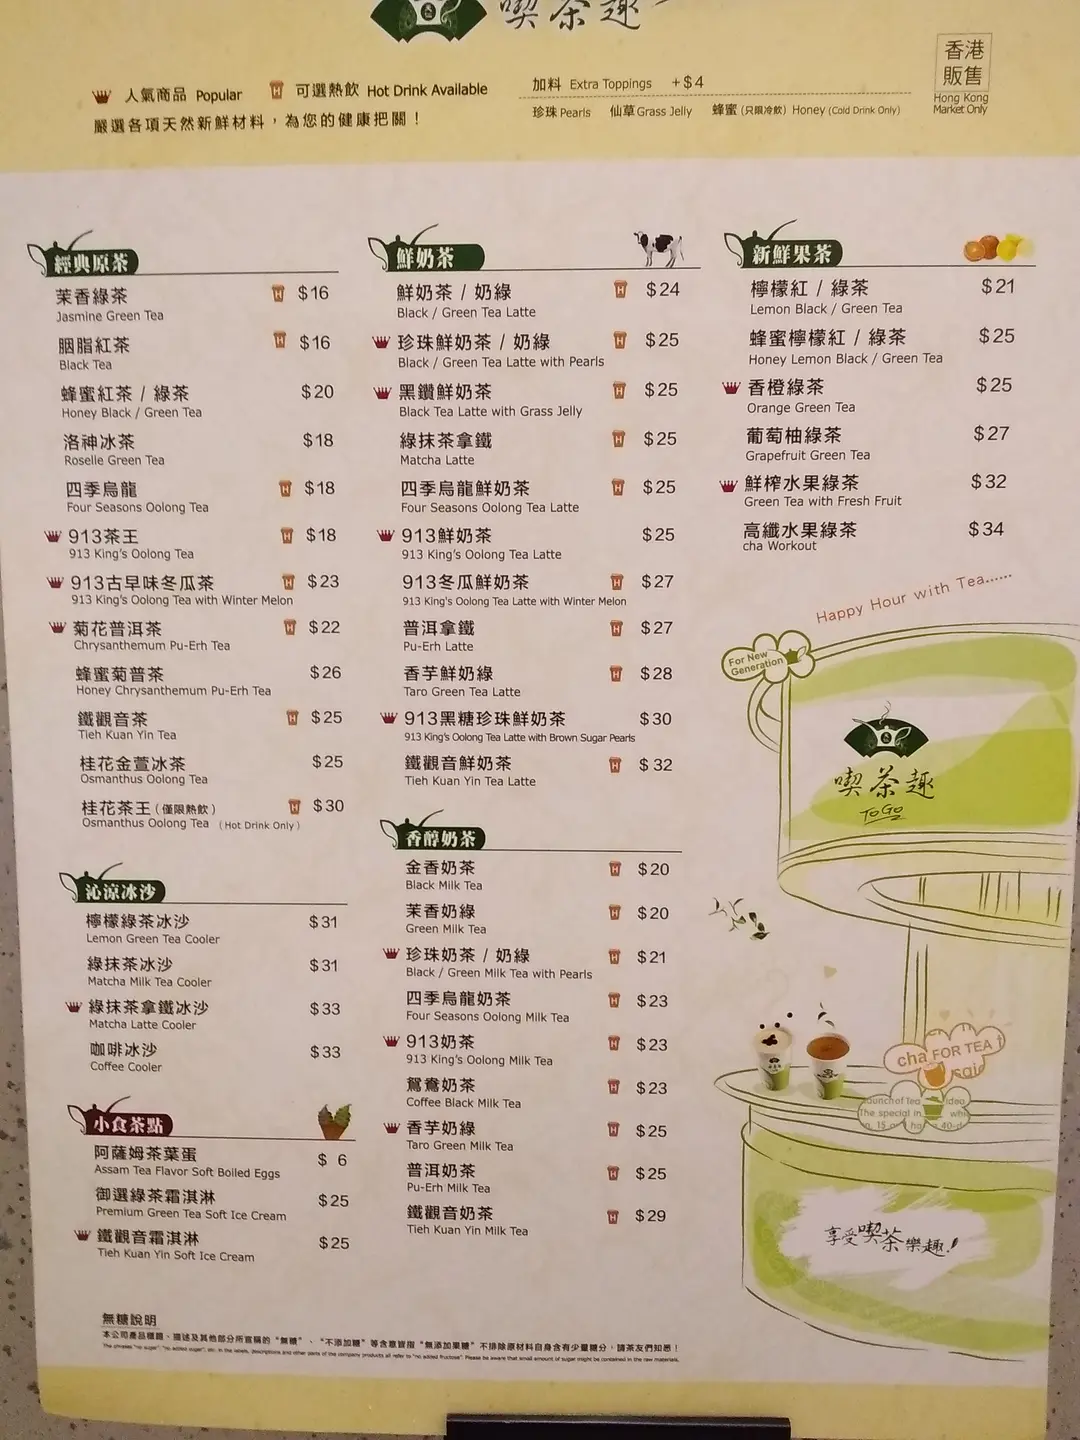 喫茶趣
人氣商品 Popular
可選熱飲 Hot Drink Available
嚴選各項天然新鮮材料，為您的健康把關！
加料 Extra Toppings +$4
珍珠 Pearls 仙草 Grass Jelly 蜂蜜 (只限冷飲) Honey (Cold Drink Only)
香港
販售
Hong Kong
Market Only
經典原茶
茉香綠茶 H $16
Jasmine Green Tea
胭脂紅茶 H $16
Black Tea
蜂蜜紅茶 / 綠茶 $20
Honey Black / Green Tea
洛神冰茶 $18
Roselle Green Tea
四季烏龍 H $18
Four Seasons Oolong Tea
913茶王 H $18
913 King's Oolong Tea
913古早味冬瓜茶 H $23
913 King's Oolong Tea with Winter Melon
菊花普洱茶 H $22
Chrysanthemum Pu-Erh Tea
蜂蜜菊普茶 $26
Honey Chrysanthemum Pu-Erh Tea
鐵觀音茶 H $25
Tieh Kuan Yin Tea
桂花金萱冰茶 $25
Osmanthus Oolong Tea
桂花茶王 (僅限熱飲) H $30
Osmanthus Oolong Tea (Hot Drink Only)
沁涼冰沙
檸檬綠茶冰沙 $31
Lemon Green Tea Cooler
綠抹茶冰沙 $31
Matcha Milk Tea Cooler
綠抹茶拿鐵冰沙 $33
Matcha Latte Cooler
咖啡冰沙 $33
Coffee Cooler
小食茶點
阿薩姆茶葉蛋 $ 6
Assam Tea Flavor Soft Boiled Eggs
御選綠茶霜淇淋 $25
Premium Green Tea Soft Ice Cream
鐵觀音霜淇淋 $25
Tieh Kuan Yin Soft Ice Cream
鮮奶茶
鮮奶茶 / 奶綠 H $24
Black / Green Tea Latte
珍珠鮮奶茶 / 奶綠 H $25
Black / Green Tea Latte with Pearls
黑鑽鮮奶茶 H $25
Black Tea Latte with Grass Jelly
綠抹茶拿鐵 H $25
Matcha Latte
四季烏龍鮮奶茶 H $25
Four Seasons Oolong Tea Latte
913鮮奶茶 $25
913 King's Oolong Tea Latte
913冬瓜鮮奶茶 H $27
913 King's Oolong Tea Latte with Winter Melon
普洱拿鐵 H $27
Pu-Erh Latte
香芋鮮奶綠 H $28
Taro Green Tea Latte
913黑糖珍珠鮮奶茶 $30
913 King's Oolong Tea Latte with Brown Sugar Pearls
鐵觀音鮮奶茶 H $32
Tieh Kuan Yin Tea Latte
香醇奶茶
金香奶茶 H $20
Black Milk Tea
茉香奶綠 H $20
Green Milk Tea
珍珠奶茶 / 奶綠 H $21
Black / Green Milk Tea with Pearls
四季烏龍奶茶 H $23
Four Seasons Oolong Milk Tea
913奶茶 H $23
913 King's Oolong Milk Tea
鴛鴦奶茶 H $23
Coffee Black Milk Tea
香芋奶綠 H $25
Taro Green Milk Tea
普洱奶茶 H $25
Pu-Erh Milk Tea
鐵觀音奶茶 H $29
Tieh Kuan Yin Milk Tea
新鮮果茶
檸檬紅 / 綠茶 $21
Lemon Black / Green Tea
蜂蜜檸檬紅 / 綠茶 $25
Honey Lemon Black / Green Tea
香橙綠茶 $25
Orange Green Tea
葡萄柚綠茶 $27
Grapefruit Green Tea
鮮榨水果綠茶 $32
Green Tea with Fresh Fruit
高纖水果綠茶 $34
cha Workout
Happy Hour with Tea......
For New
Generation
喫茶趣
ToGo
cha FOR TEA
The special in
享受喫茶樂趣！
無糖說明
本公司產品標題、描述及其他部分所宣稱的“無糖”、“不添加糖”等含意皆指“無添加果糖”不排除原材料自身含有少量糖分，請茶友們知悉！
The phrases "no sugar", "no added sugar", etc. in the labels, descriptions and other parts of the company products all refer to "no added fructose". Please be aware that small amount of sugar might be contained in the raw materials.